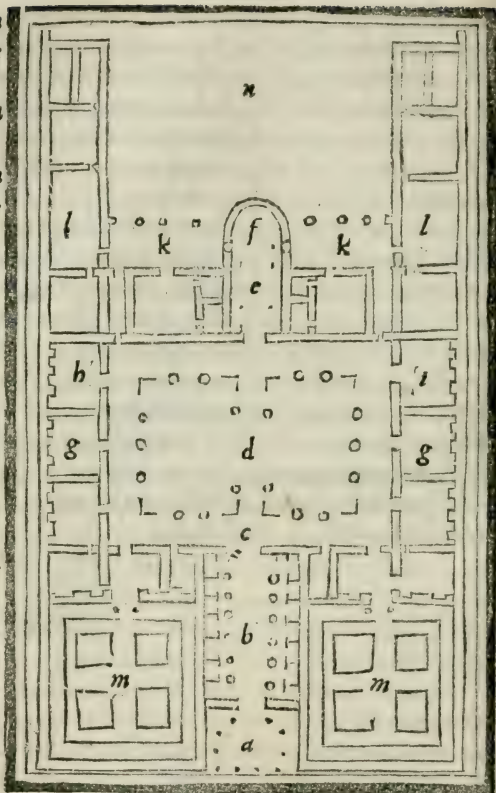 n
l l
f
k k
e
h i
g d g
c
b
m m
a